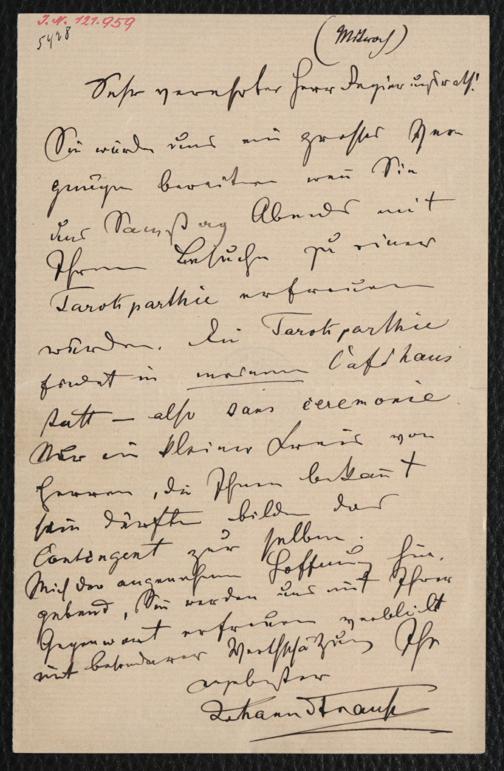 J. N. 121.959
5428
(Mittwoch)
Sehr verehrter Herr Regierungsrath!
Sie würden uns ein grosses Ver=
gnügen bereiten wen̄ Sie
uns Samstag Abends mit
Ihrem Besuche zu einer
Tarokparthie erfreuen
würden. Die Tarokparthie
findet in meinem Caféhaus
statt – also sans ceremonie.
Nur ein kleiner Kreis von
Herren, die Ihnen bekan̄t
sein dürften bilden das
Contingent zur selben.
Mich der angenehmen Hoffnung hin=
gebend, Sie werden uns mit Ihrer
Gegenwart erfreuen verbleibt
mit besonderer Werthschätzung Ihr
ergebenster
Johann Strauss